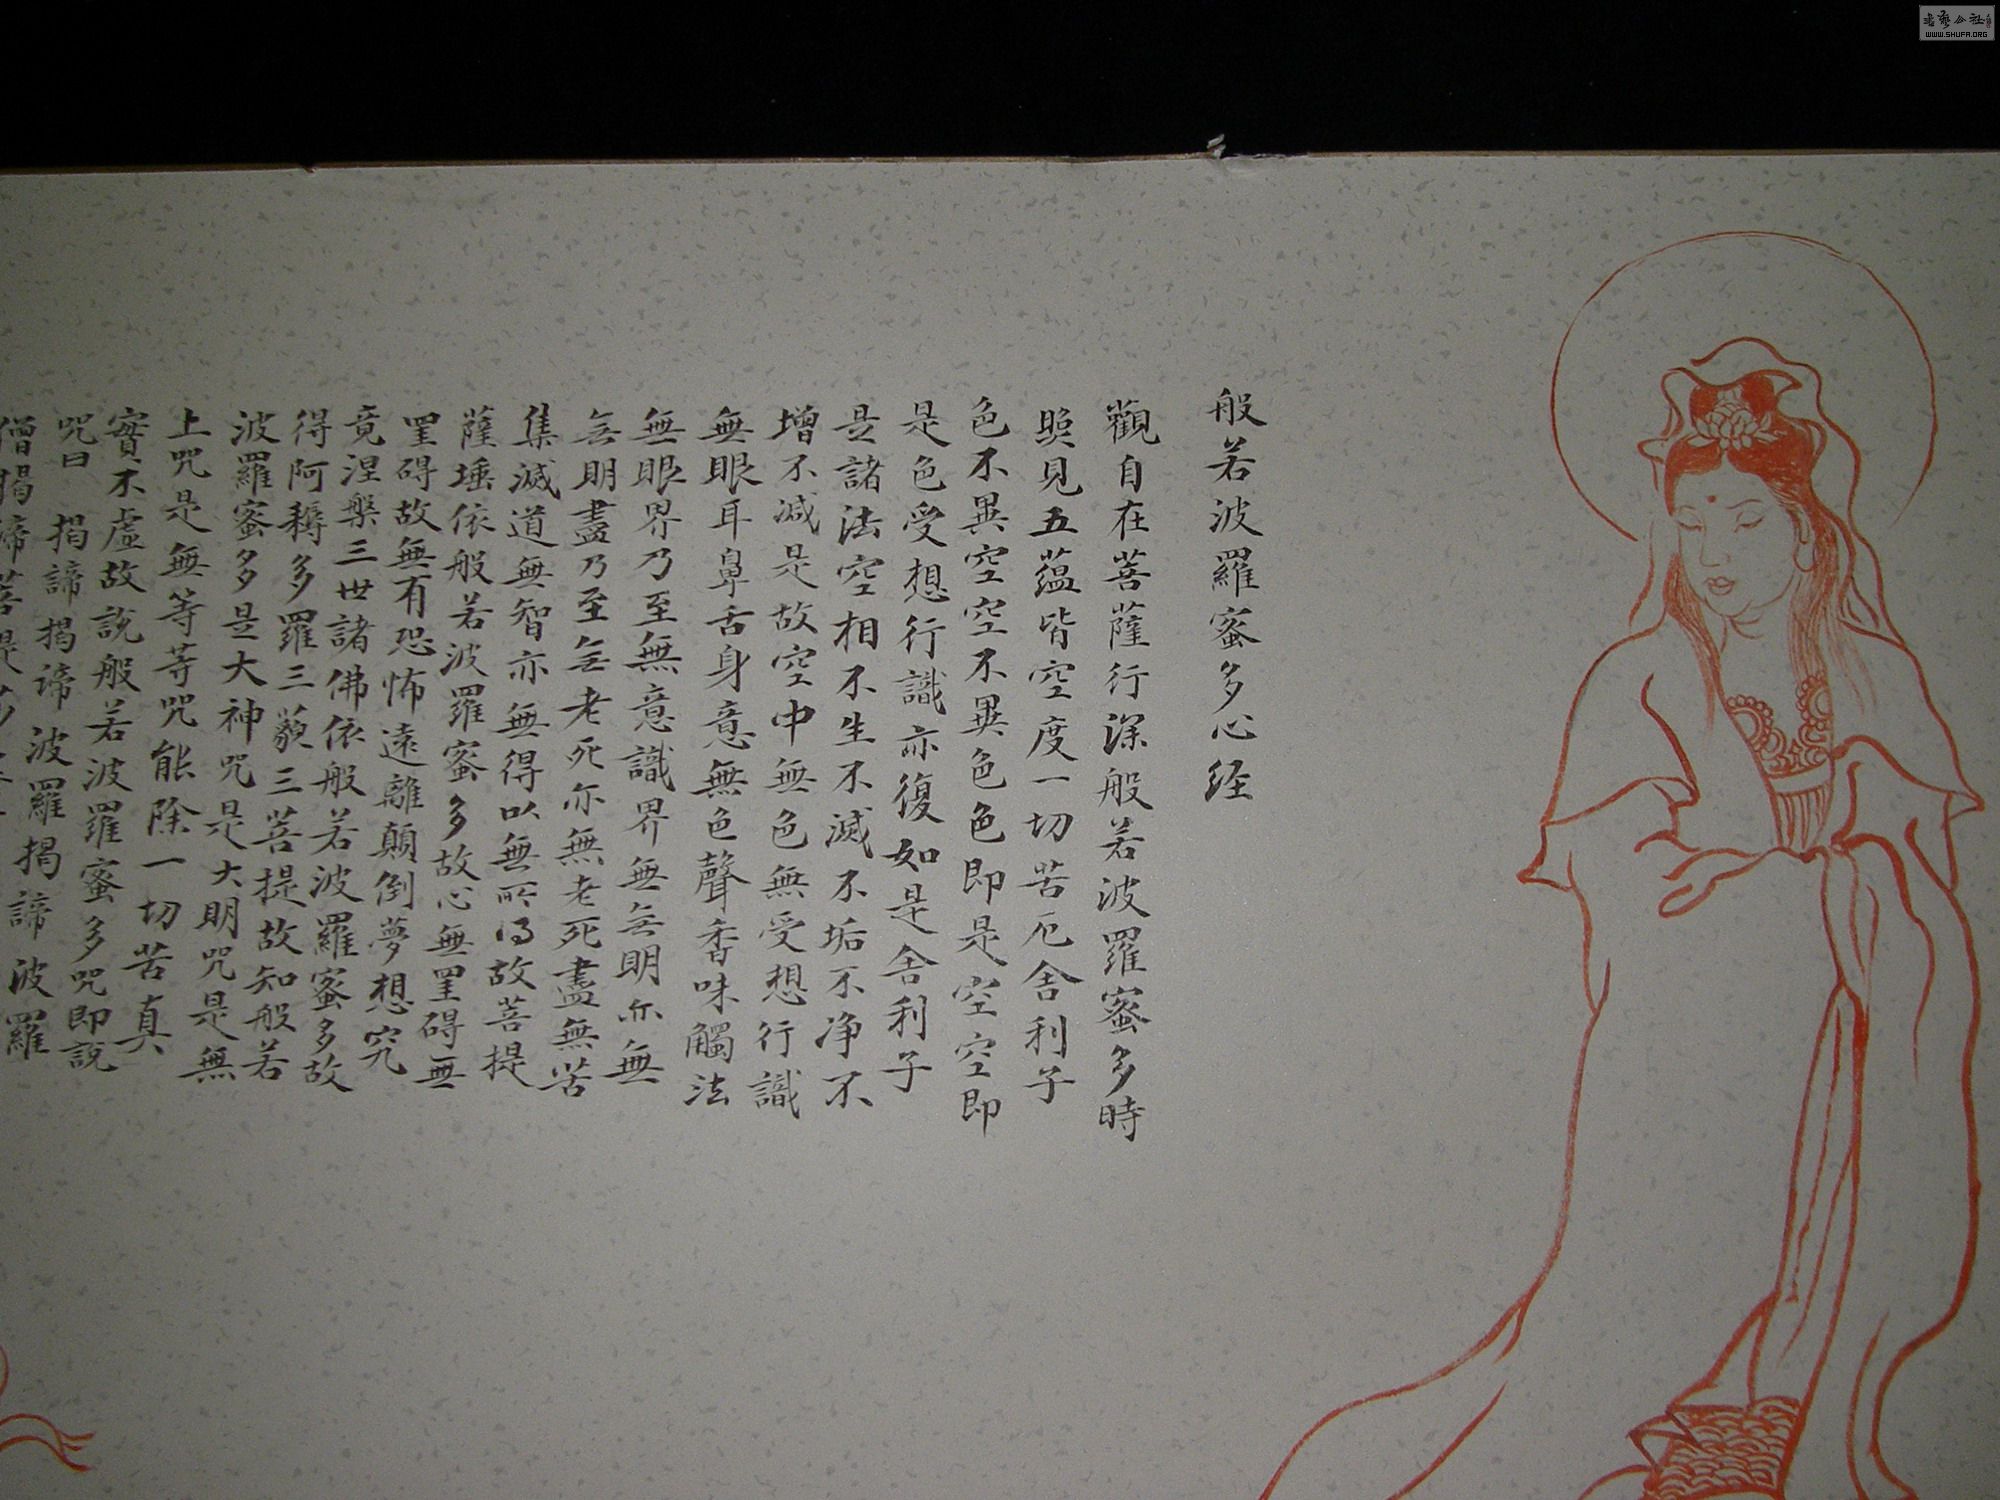 般若波羅蜜多心经
觀自在菩薩行深般若波羅蜜多時
照見五蕴皆空度一切苦厄舍利子
色不異空空不異色色即是空空即
是色受想行識亦復如是舍利子
是諸法空相不生不滅不垢不净不
增不減是故空中無色無受想行識
無眼耳鼻舌身意無色聲香味觸法
無眼界乃至無意識界無无明亦無
无明盡乃至无老死亦無老死盡無苦
集滅道無智亦無得以無所得故菩提
薩埵依般若波羅蜜多故心無罣碍無
罣碍故無有恐怖遠離顛倒夢想究
竟涅槃三世諸佛依般若波羅蜜多故
得阿耨多羅三藐三菩提故知般若
波羅蜜多是大神咒是大明咒是無
上咒是無等等咒能除一切苦真
實不虛故説般若波羅蜜多咒即説
咒曰 揭諦揭諦 波羅揭諦 波羅
僧揭諦菩提
书艺公社
WWW.SHUFA.ORG